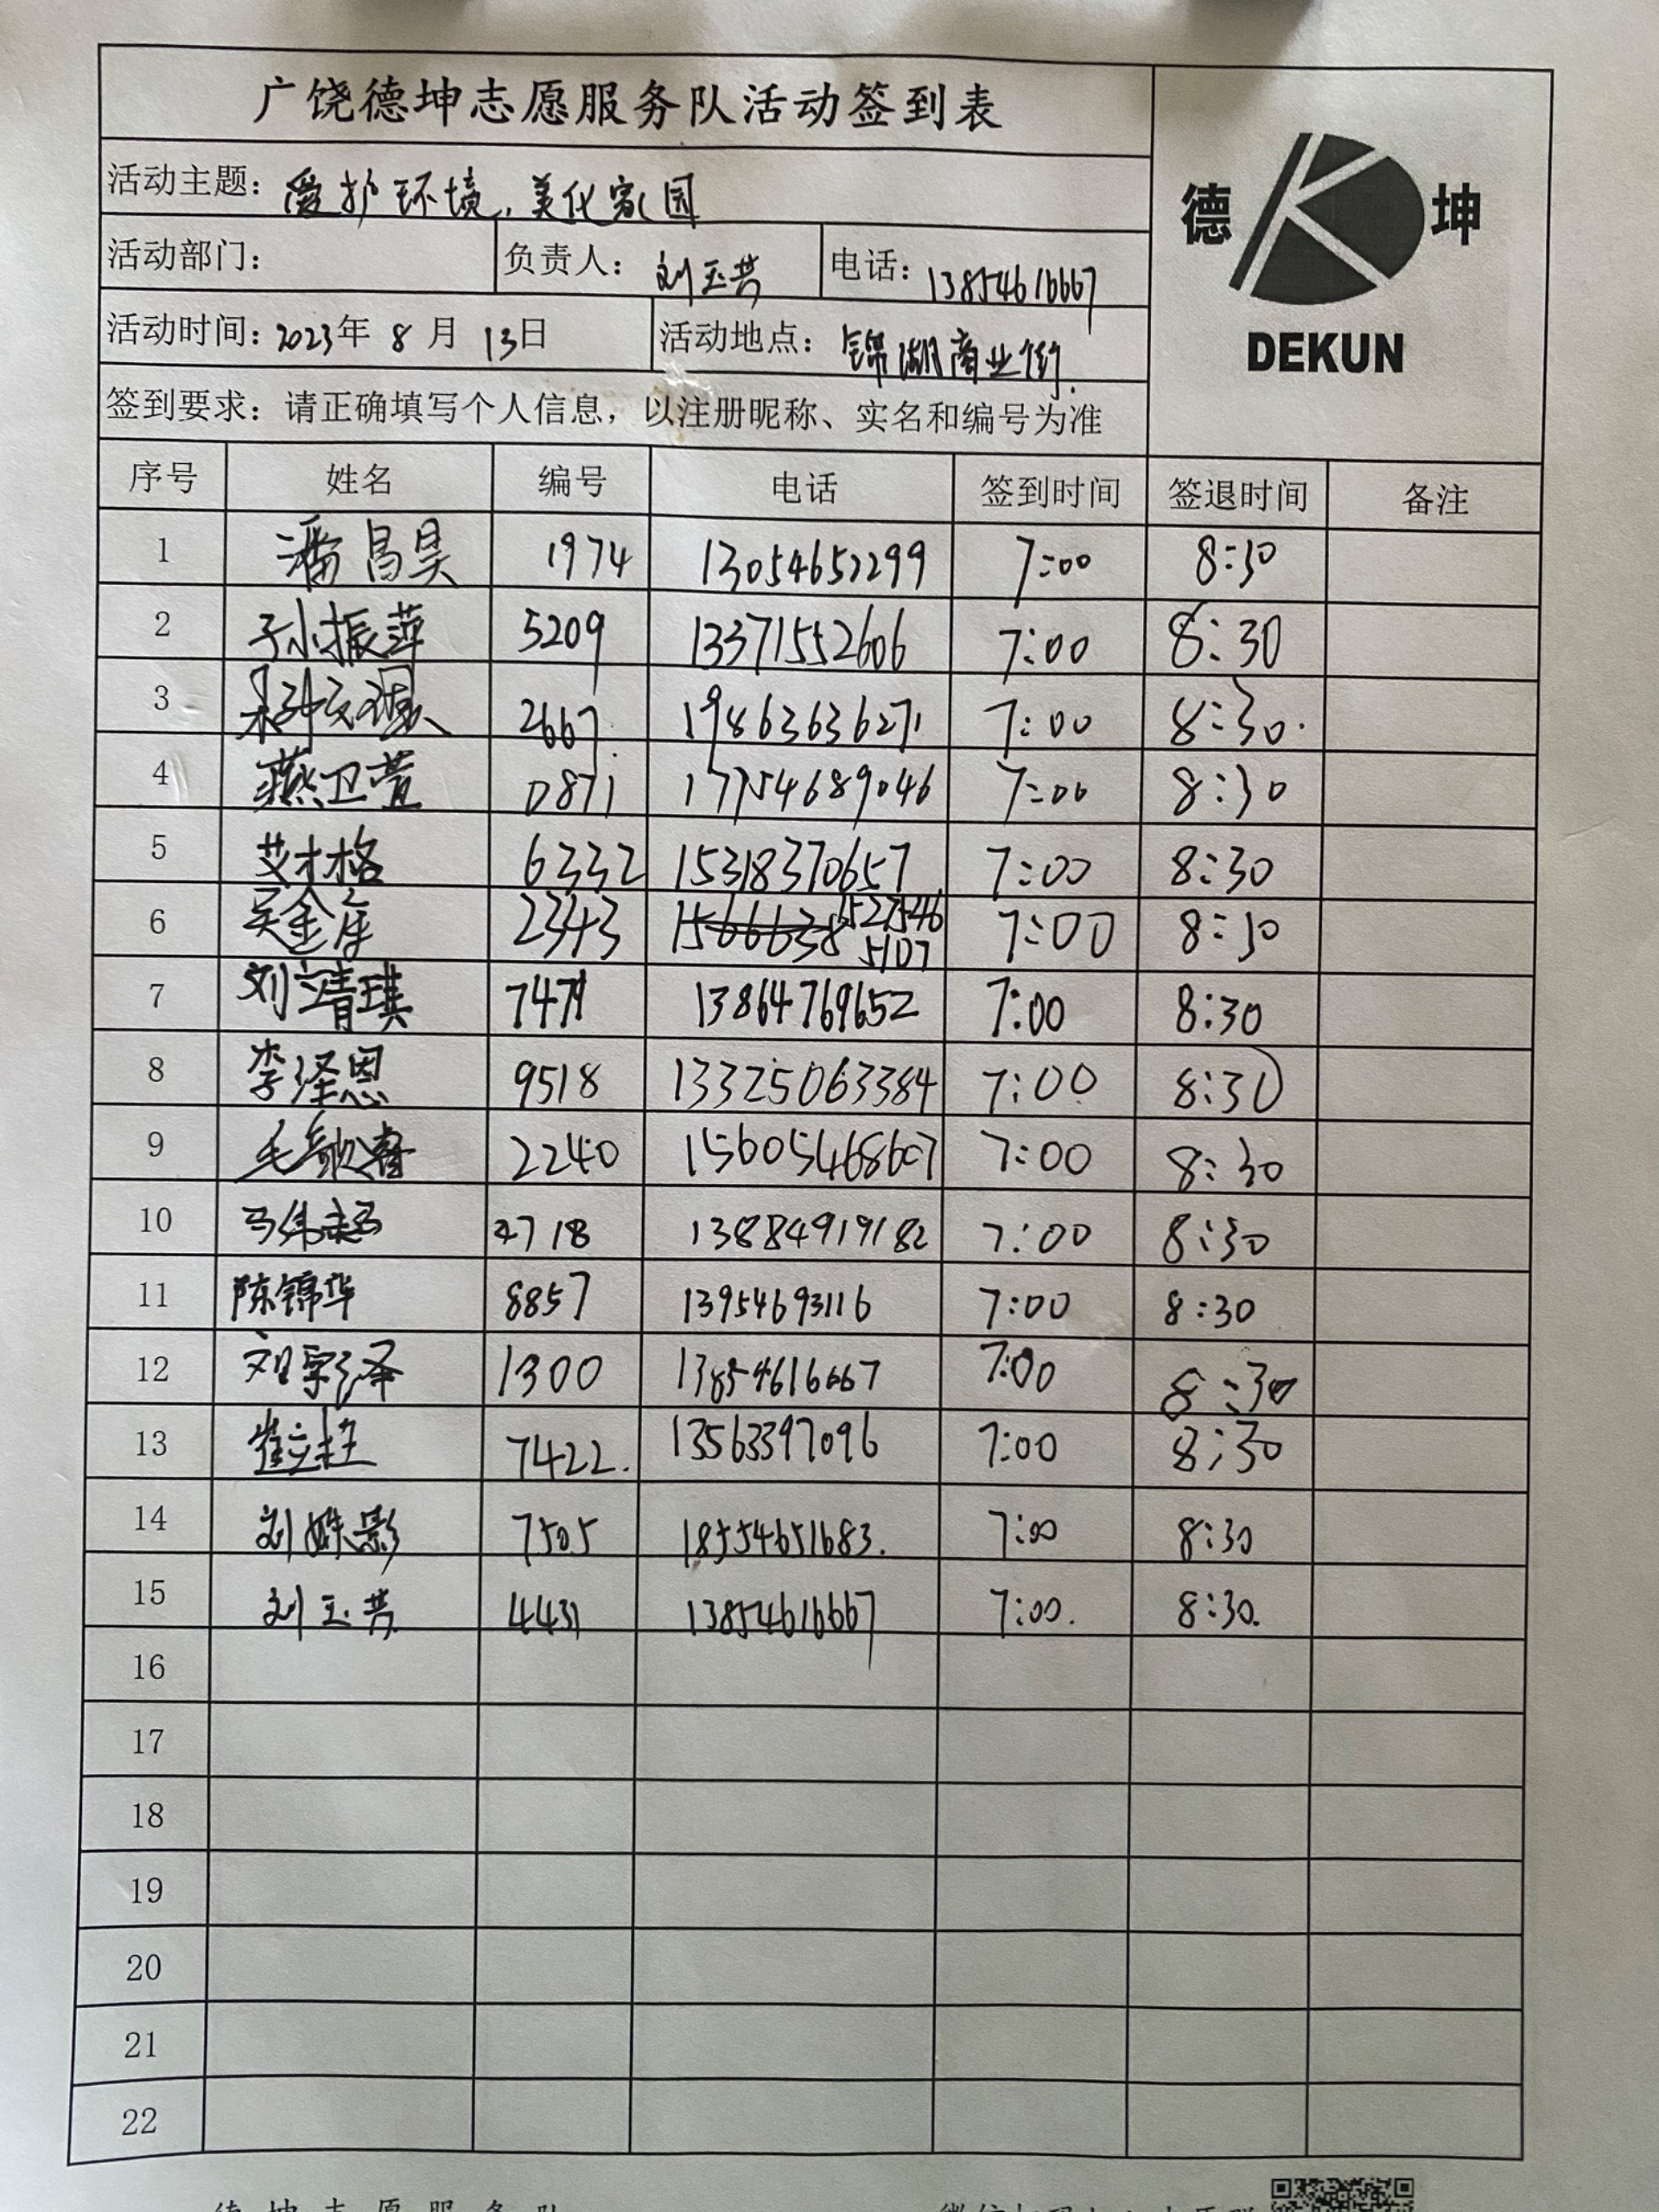 广饶德坤志愿服务队活动签到表
德 坤
DEKUN
活动主题：爱护环境，美化家园
活动部门： 负责人：刘玉芳 电话：13854616667
活动时间：2023年 8 月 13日 活动地点：锦湖商业街.
签到要求：请正确填写个人信息，以注册昵称、实名和编号为准
序号 姓名 编号 电话 签到时间 签退时间 备注
1 潘昌昊 1974 13054652299 7:00 8:30
2 孙振萍 5209 13371552606 7:00 8:30
3 2667 19863636271 7:00 8:30.
4 燕卫萱 0871 17754689046 7:00 8:30
5 艾才格 6332 15318370657 7:00 8:30
6 吴金库 2343 15275465107 7:00 8:30
7 刘清琪 7471 13864769652 7:00 8:30
8 李泽恩 9518 13325063384 7:00 8:30
9 毛歌睿 2240 15605468607 7:00 8:30
10 马伟超 4718 13884919182 7:00 8:30
11 陈锦华 8857 13954693116 7:00 8:30
12 1300 13854616667 7:00 8:30
13 崔立柱 7422. 13563397096 7:00 8:30
14 刘姝影 7505 18554651683. 7:00 8:30
15 刘玉芳 4431 13854616667 7:00. 8:30.
16
17
18
19
20
21
22
德坤志愿服务队